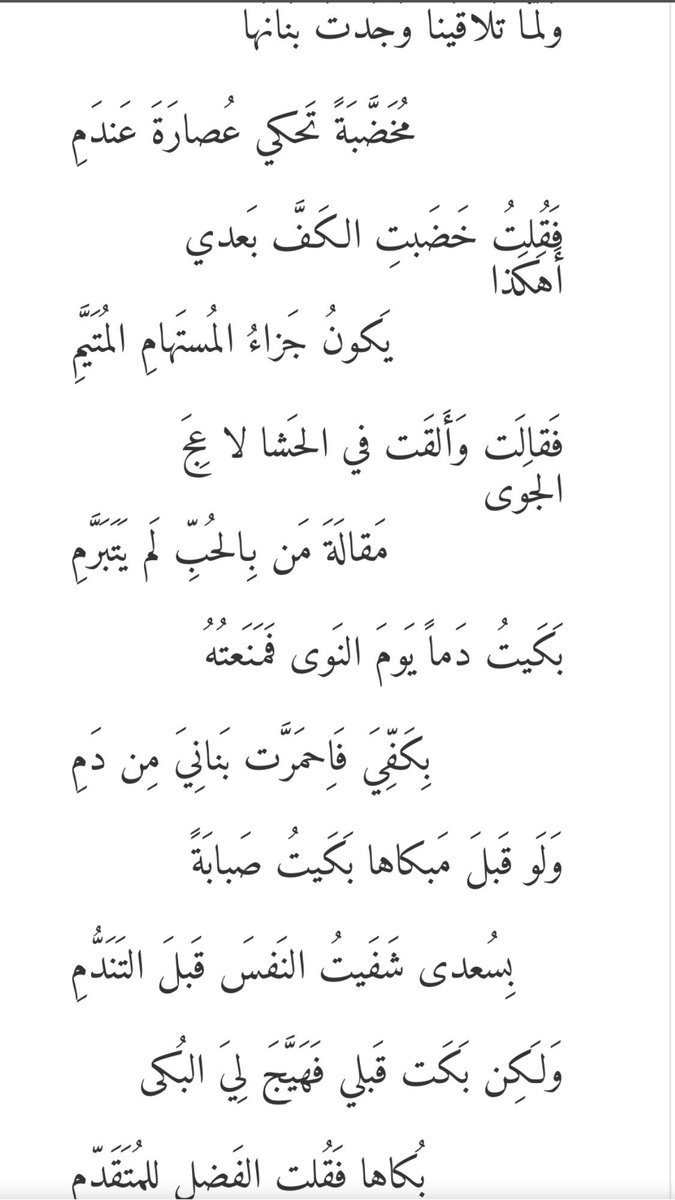 وَلَمّا تَلاقَينا وَجَدتُ بَنانَها
مُخَضَّبَةً تَحكي عُصارَةَ عَندَمِ
فَقُلتُ خَضَبتِ الكَفَّ بَعدي
أَهَكَذا
يَكونُ جَزاءُ المُستَهامِ المُتَيَّمِ
فَقالَت وَأَلقَت في الحَشا لا عِجَ
الجَوى
مَقالَةَ مَن بِالحُبِّ لَم يَتَبَرَّمِ
بَكَيتُ دَماً يَومَ النَوى فَمَنَعتُهُ
بِكَفِّيَ فَاِحمَرَّت بَنانِيَ مِن دَمِ
وَلَو قَبلَ مَبكاها بَكَيتُ صَبابَةً
بِسُعدى شَفَيتُ النَفسَ قَبلَ التَنَدُّمِ
وَلَكِن بَكَت قَبلي فَهَيَّجَ لِيَ البُكى
بُكاها فَقُلت الفَضل لِلمُتَقَدِّم